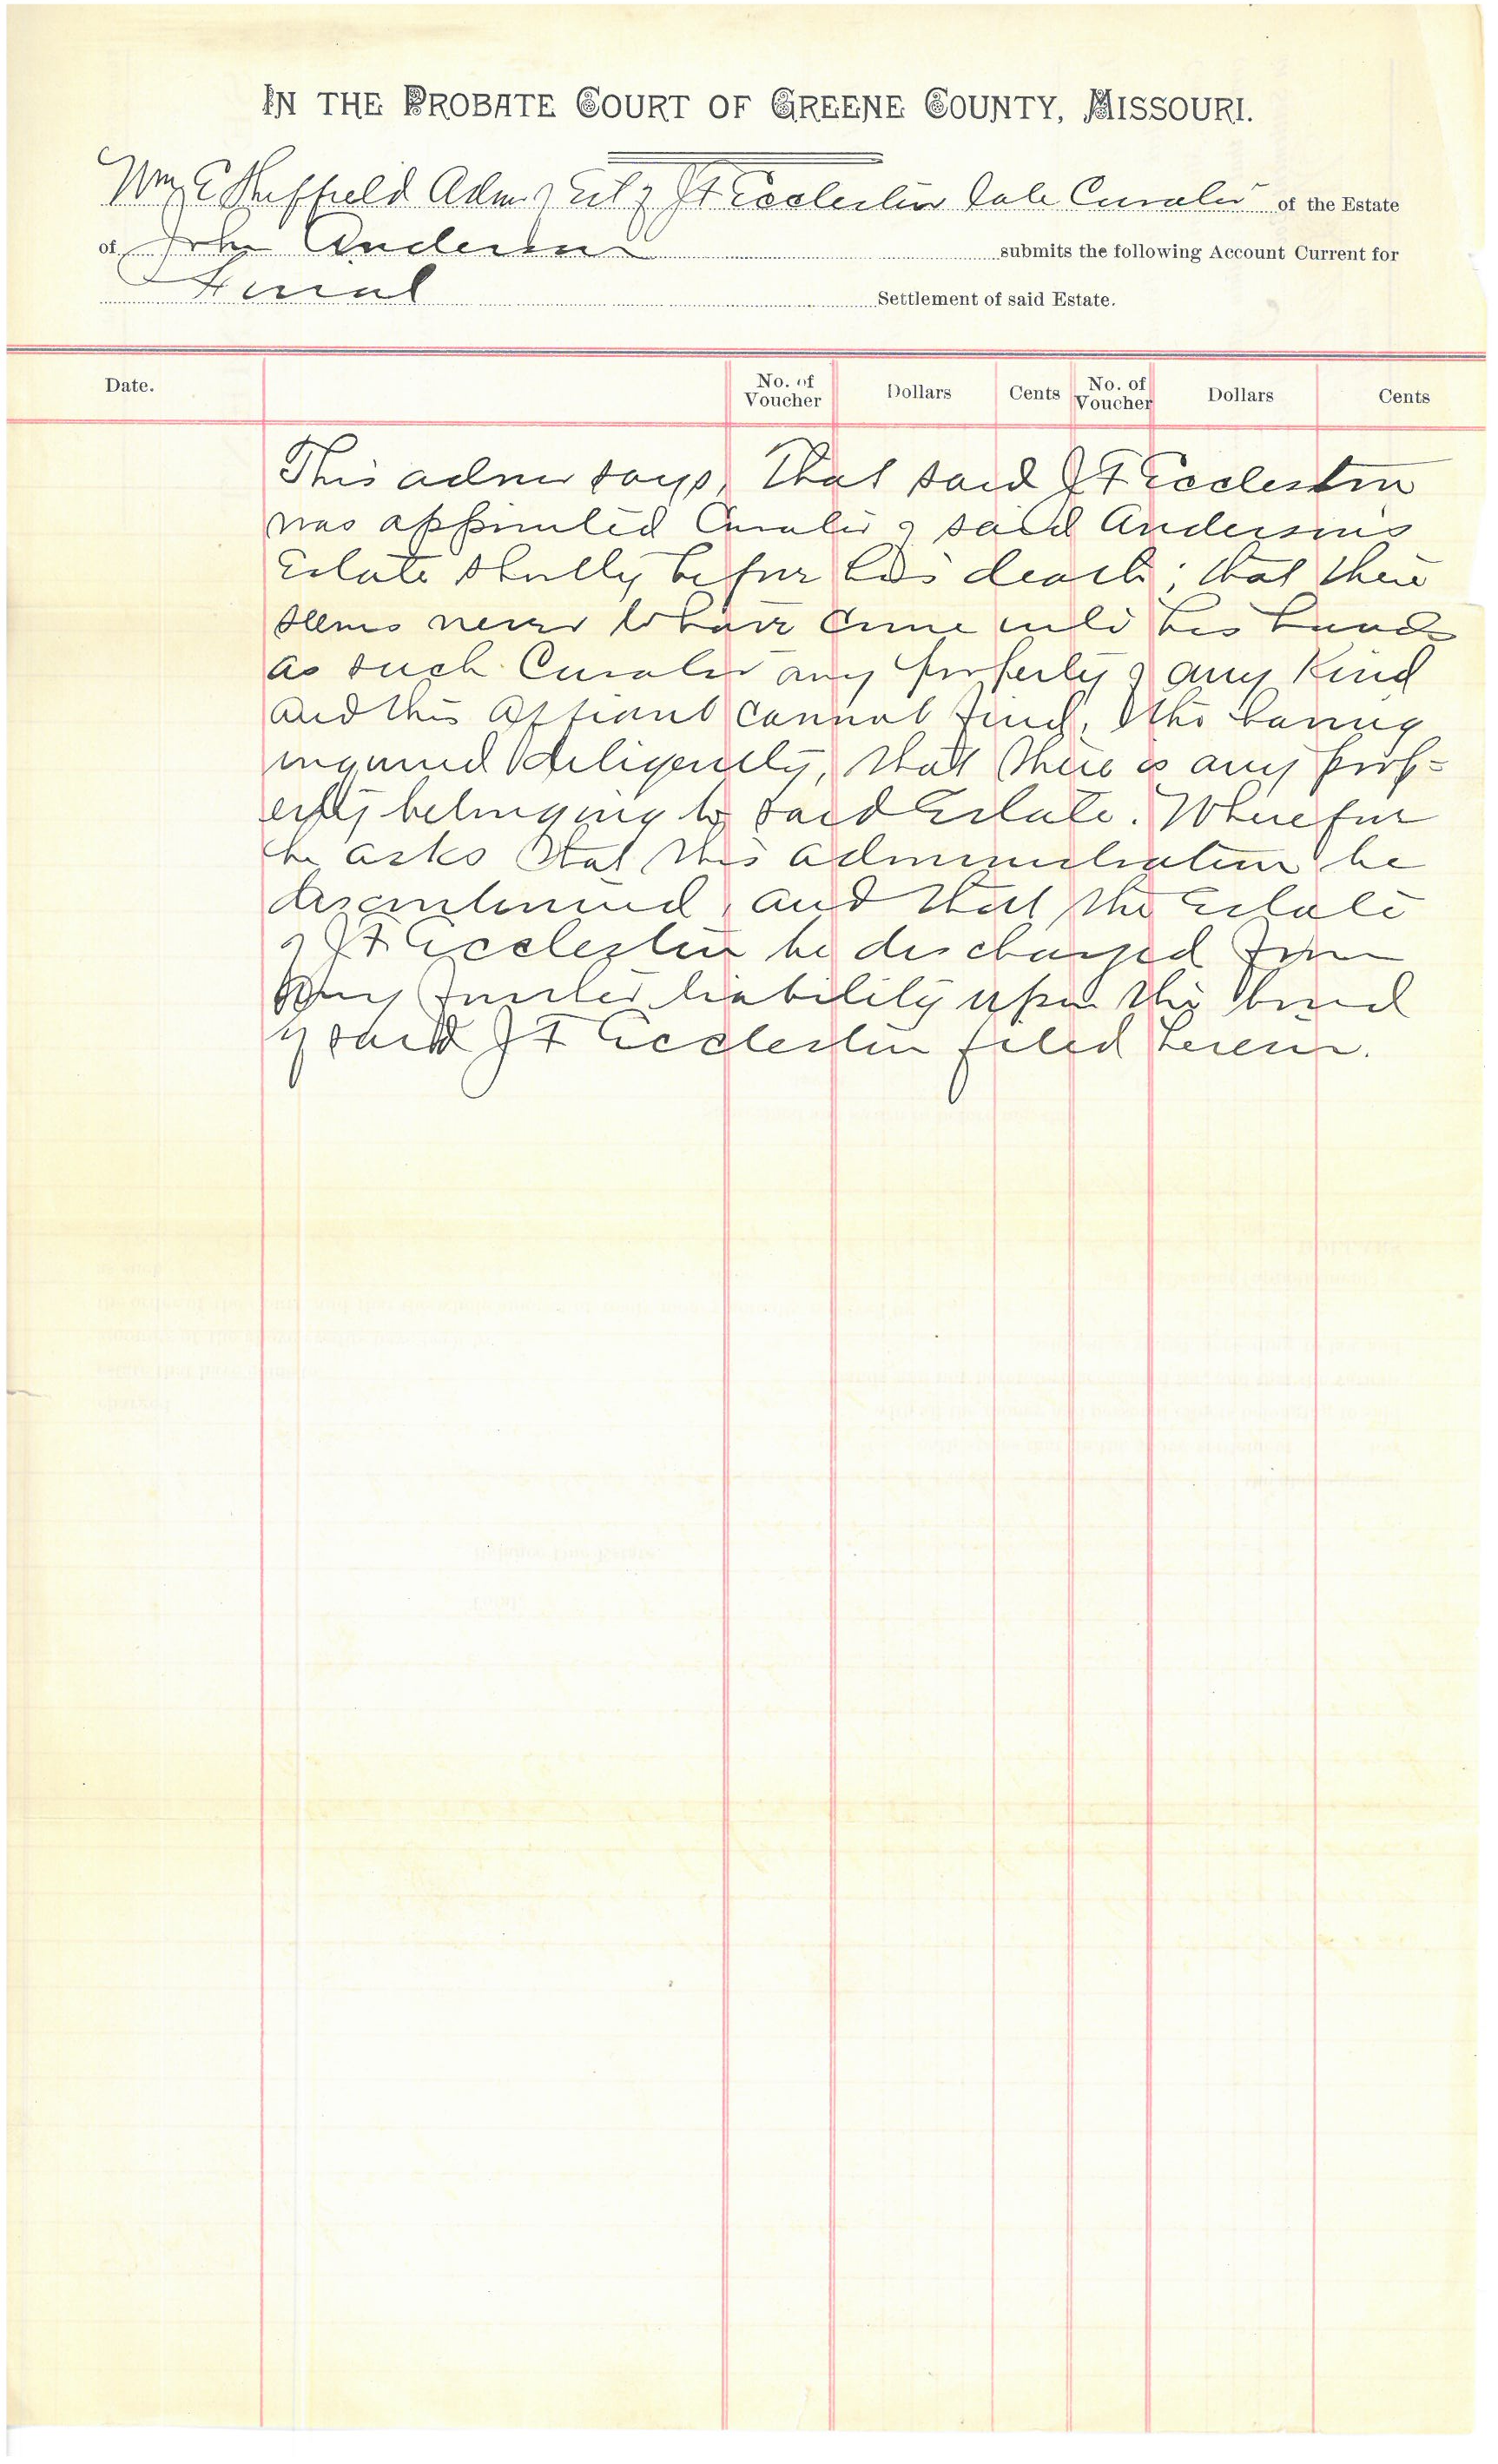 IN THE PROBATE COURT OF GREENE COUNTY, MISSOURI.
Wm C Sheffield Adm of Est of J F Eccleston late Curator of the Estate
of John Anderson submits the following Account Current for
Final Settlement of said Estate.
Date. No. of Voucher Dollars Cents No. of Voucher Dollars Cents
This admr says, That said J F Eccleston
was appointed Curator of said Andersons
Estate shortly before his death; that there
seems never to have come into his hands
as such Curator any property of any Kind
and this Affiant cannot find, tho having
inquired diligently, that there is any prop-
erty belonging to said Estate. Wherefore
he asks that this administration be
discontinued, and that the Estate
of J F Eccleston be discharged from
any further liability upon the bond
of said J F Eccleston filed herein.